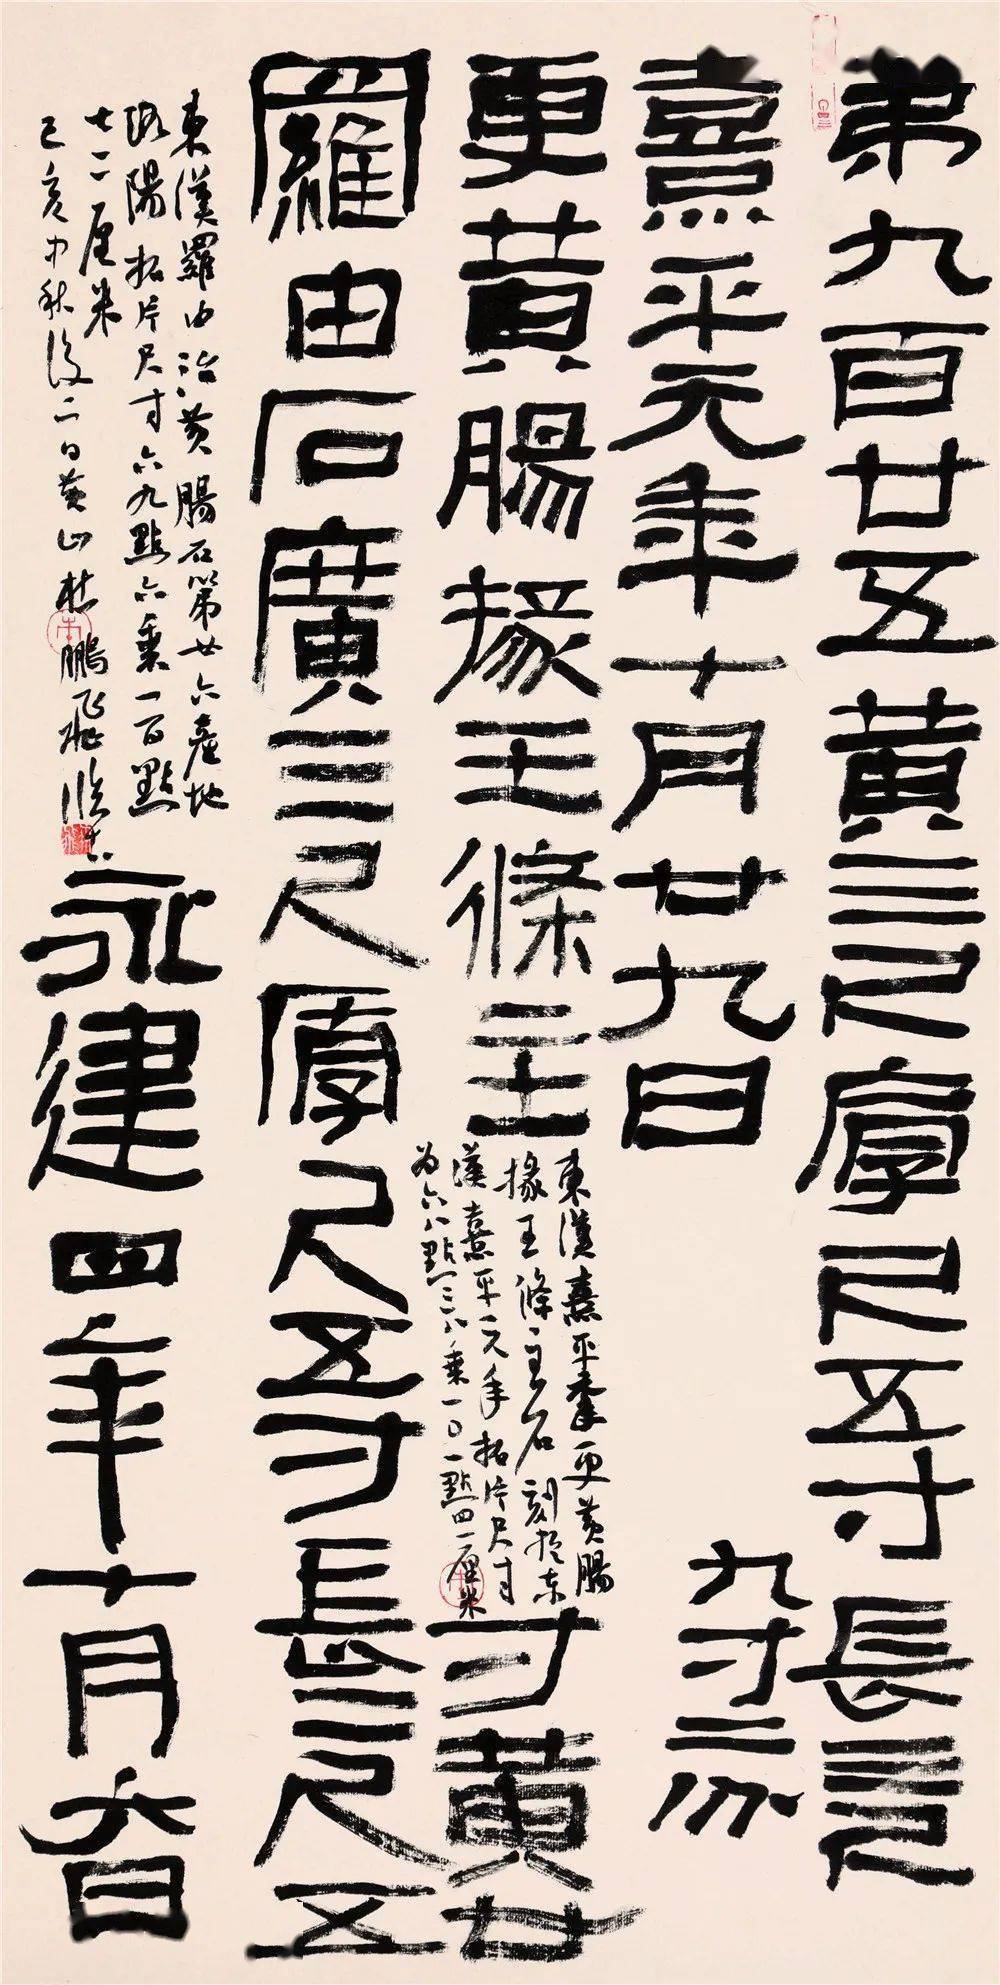 弟九百廿五黄三尺厚尺五寸長三尺
九寸二分
熹平元年十月廿九日
更黄腸掾王條主
東漢熹平年更黄腸
掾王條主石刻於東
漢熹平元年拓片尺寸
为六八點三八乘一〇一點四一厘米
羅由石廣三尺厚尺五寸長三尺五
寸黄廿
永建四年十月
東漢羅由治黄腸石第廿六產地
洛陽拓片尺寸六九點六乘一百點
七二厘米
己亥中秋後二日黄山杜鵬飛臨古